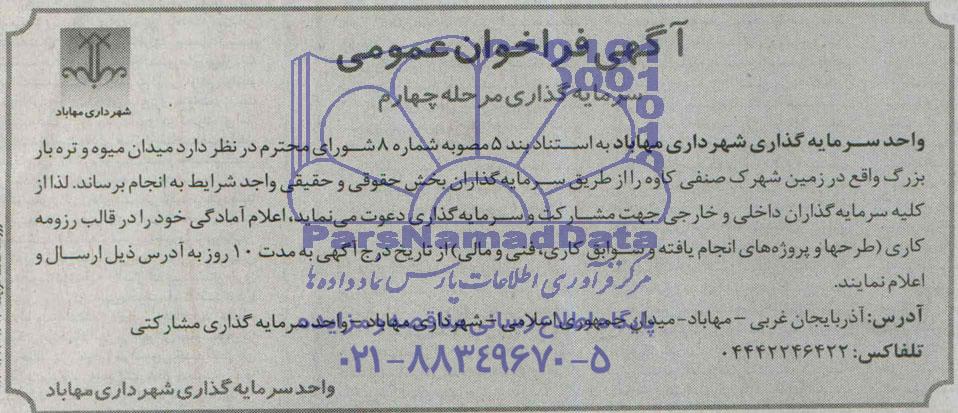 آگهی فراخوان عمومی
سرمایه گذاری مرحله چهارم
شهرداری مهاباد
واحد سرمایه گذاری شهرداری مهاباد به استناد بند ۵ مصوبه شماره ۸ شورای محترم در نظر دارد میدان میوه و تره بار
بزرگ واقع در زمین شهرک صنفی کاوه را از طریق سرمایه گذاران بخش حقوقی و حقیقی واجد شرایط به انجام برساند. لذا از
کلیه سرمایه گذاران داخلی و خارجی جهت مشارکت و سرمایه گذاری دعوت می نماید، اعلام آمادگی خود را در قالب رزومه
کاری (طرحها و پروژه های انجام یافته و سوابق کاری، فنی و مالی) از تاریخ درج آگهی به مدت ۱۰ روز به آدرس ذیل ارسال و
اعلام نمایند.
آدرس: آذربایجان غربی - مهاباد- میدان جمهوری اسلامی - شهرداری مهاباد - واحد سرمایه گذاری مشارکتی
تلفاکس: ۰۴۴۴۲۲۴۶۴۲۲
واحد سرمایه گذاری شهرداری مهاباد
ParsNamadData
مرکز فرآوری اطلاعات پارس نماد داده ها
پایگاه اطلاع رسانی مناقصه و مزایده
۰۲۱-۸۸۳۴۹۶۷۰-۵